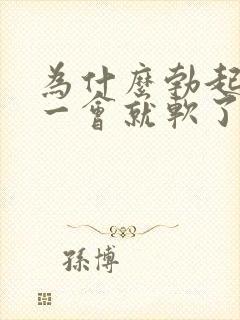 為什麼勃起
一會就軟了
孫博